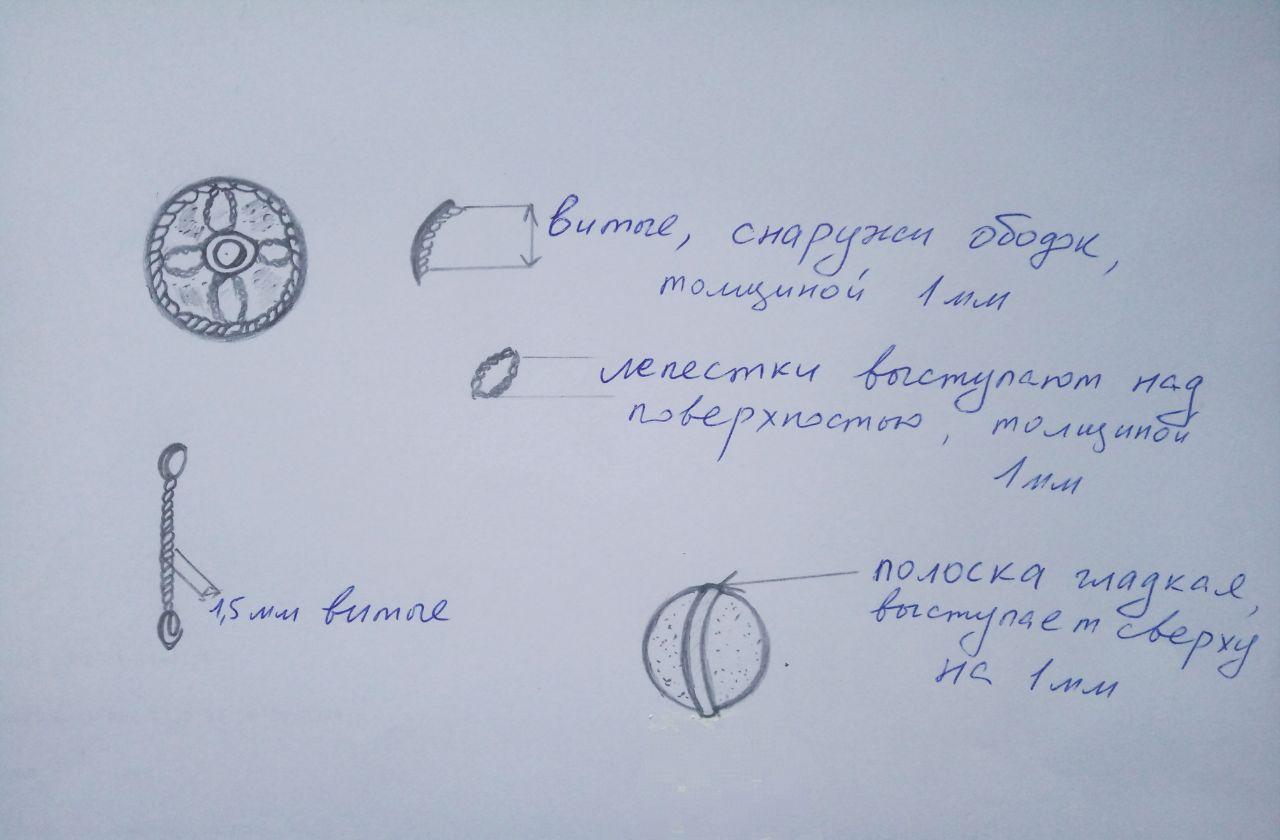 витые, снаружи ободок,
толщиной 1 мм
лепестки выступают над
поверхностью, толщиной
1 мм
1,5 мм витые
полоска гладкая,
выступает сверху
на 1 мм